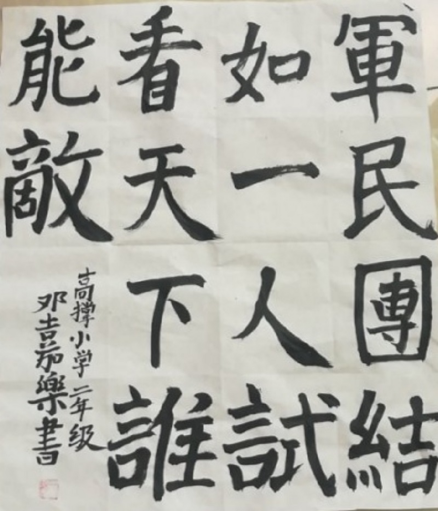 軍民團結
如一人試
看天下誰
能敵
高撑小学二年级
邓吉茄樂書